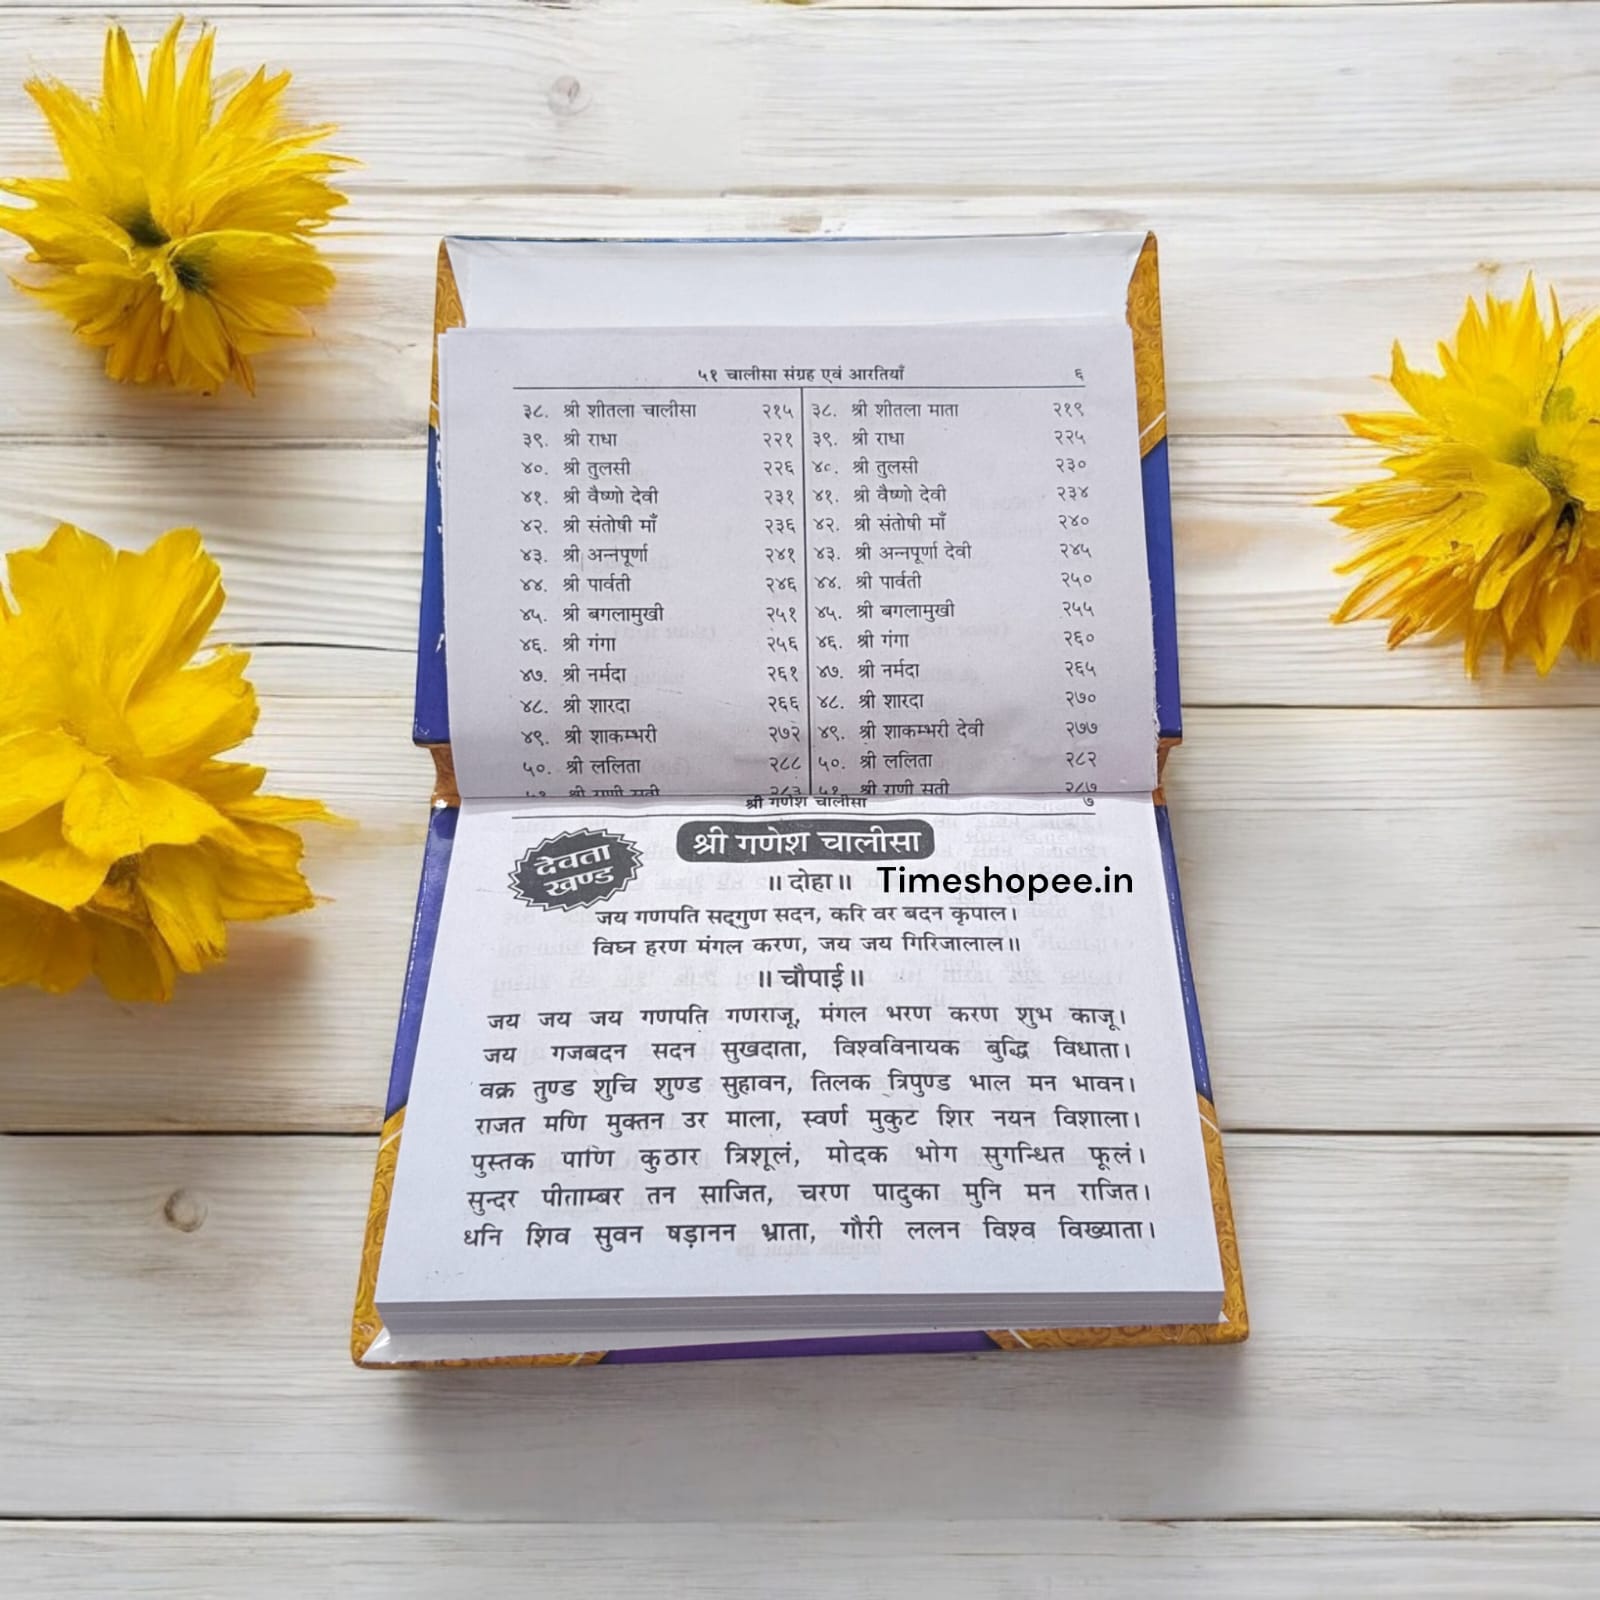 ५१ चालीसा संग्रह एवं आरतियाँ ६
३८. श्री शीतला चालीसा २१५ ३८. श्री शीतला माता २१९
३९. श्री राधा २२१ ३९. श्री राधा २२५
४०. श्री तुलसी २२६ ४०. श्री तुलसी २३०
४१. श्री वैष्णो देवी २३१ ४१. श्री वैष्णो देवी २३४
४२. श्री संतोषी माँ २३६ ४२. श्री संतोषी माँ २४०
४३. श्री अन्नपूर्णा २४१ ४३. श्री अन्नपूर्णा देवी २४५
४४. श्री पार्वती २४६ ४४. श्री पार्वती २५०
४५. श्री बगलामुखी २५१ ४५. श्री बगलामुखी २५५
४६. श्री गंगा २५६ ४६. श्री गंगा २६०
४७. श्री नर्मदा २६१ ४७. श्री नर्मदा २६५
४८. श्री शारदा २६६ ४८. श्री शारदा २७०
४९. श्री शाकम्भरी २७२ ४९. श्री शाकम्भरी देवी २७७
५०. श्री ललिता २८८ ५०. श्री ललिता २८२
५१. श्री राणी सती २८३ ५१. श्री राणी सती २८७
श्री गणेश चालीसा ७
देवता खण्ड
श्री गणेश चालीसा
॥ दोहा॥ Timeshopee.in
जय गणपति सद्‌गुण सदन, करि वर बदन कृपाल।
विघ्न हरण मंगल करण, जय जय गिरिजालाल॥
॥ चौपाई॥
जय जय जय गणपति गणराजू, मंगल भरण करण शुभ काजू।
जय गजबदन सदन सुखदाता, विश्वविनायक बुद्धि विधाता।
वक्र तुण्ड शुचि शुण्ड सुहावन, तिलक त्रिपुण्ड भाल मन भावन।
राजत मणि मुक्तन उर माला, स्वर्ण मुकुट शिर नयन विशाला।
पुस्तक पाणि कुठार त्रिशूलं, मोदक भोग सुगन्धित फूलं।
सुन्दर पीताम्बर तन साजित, चरण पादुका मुनि मन राजित।
धनि शिव सुवन षड़ानन भ्राता, गौरी ललन विश्व विख्याता।